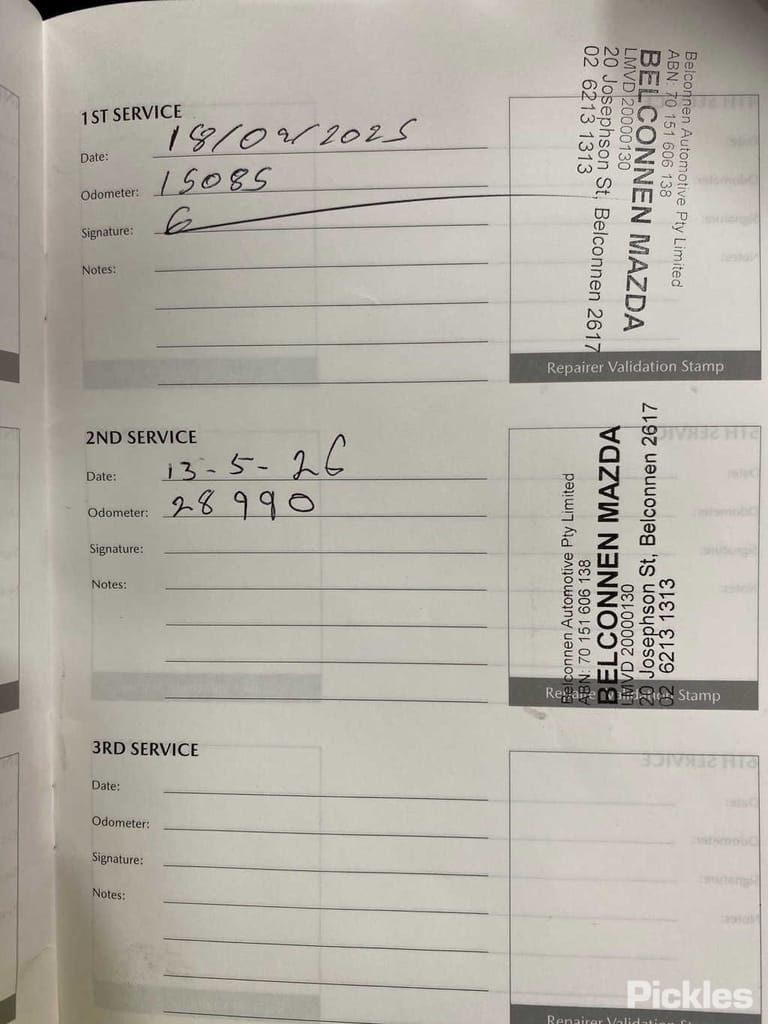 1ST SERVICE
Date: 18/02/2025
Odometer: 15085
Signature:
Notes:
Belconnen Automotive Pty Limited
ABN: 70 151 606 138
BELCONNEN MAZDA
LMVD 20000130
20 Josephson St, Belconnen 2617
02 6213 1313
Repairer Validation Stamp
2ND SERVICE
Date: 13-5-26
Odometer: 28990
Signature:
Notes:
Belconnen Automotive Pty Limited
ABN: 70 151 606 138
BELCONNEN MAZDA
LMVD 20000130
20 Josephson St, Belconnen 2617
02 6213 1313
Repairer Validation Stamp
3RD SERVICE
Date:
Odometer:
Signature:
Notes:
Repairer Validation
Pickles